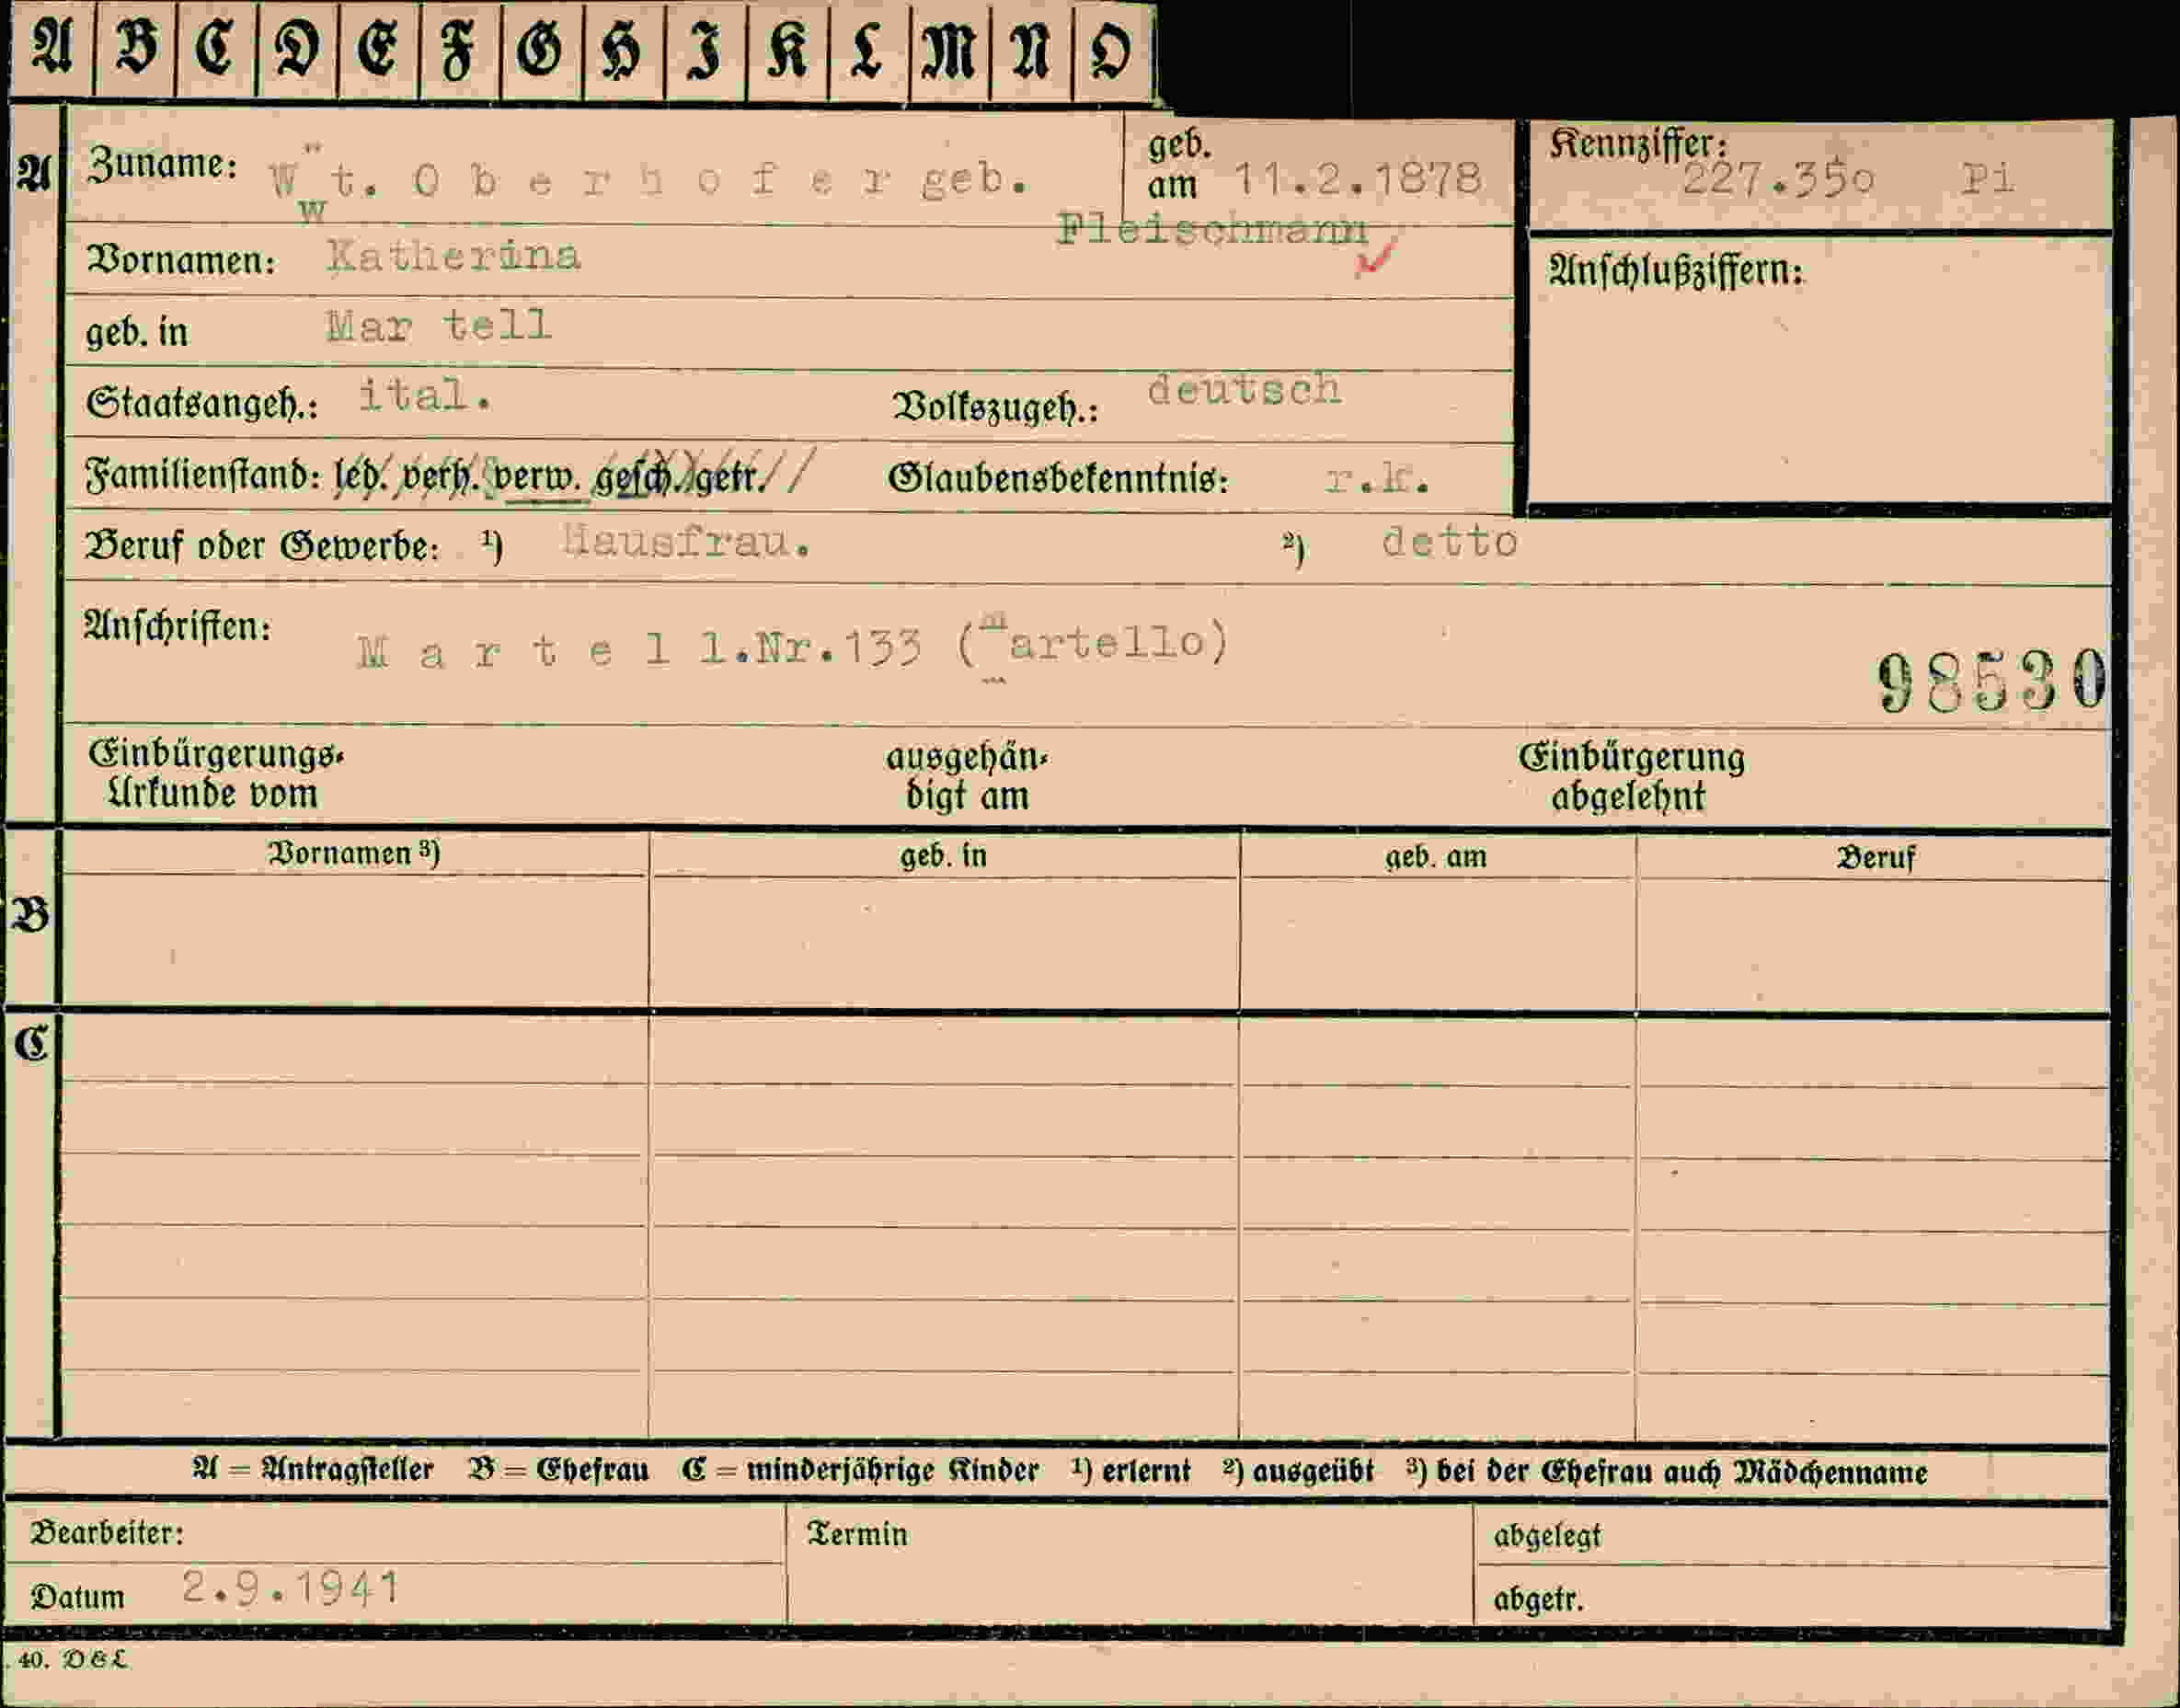 A B C D E F G H I K L M N O
A Zuname: Wwt. O b e r h o f e r geb. Fleischmann
geb. am 11.2.1878
Kennziffer: 227.350 Pi
Vornamen: Katherina
Anschlußziffern:
geb. in Mar tell
Staatsangeh.: ital. Volkszugeh.: deutsch
Familienstand: led. verh. verw. gesch. getr. Glaubensbekenntnis: r.k.
Beruf oder Gewerbe: 1) Hausfrau. 2) detto
Anschriften: M a r t e l l.Nr.133 (Martello)
98530
Einbürgerungs-Urkunde vom ausgehän-digt am Einbürgerung abgelehnt
B Vornamen 3) geb. in geb. am Beruf
C
A = Antragsteller B = Ehefrau C = minderjährige Kinder 1) erlernt 2) ausgeübt 3) bei der Ehefrau auch Mädchenname
Bearbeiter: Termin abgelegt
Datum 2.9.1941 abgetr.
40. D & L